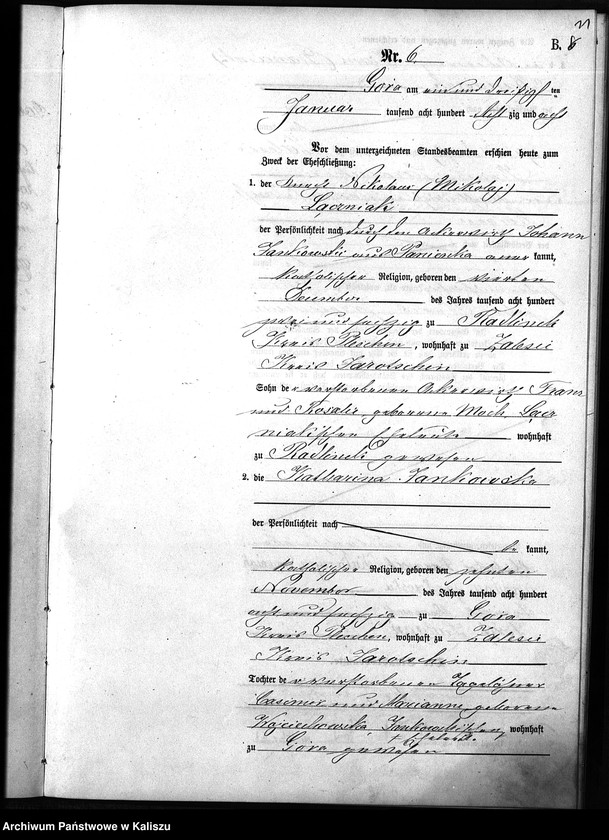 11
B. 6
Nr. 6
Gora am ein und dreißigsten
Januar tausend acht hundert achtzig und acht
Vor dem unterzeichneten Standesbeamten erschien heute zum
Zweck der Eheschließung:
1. der Knecht Nikolaus (Mikolaj)
Łączniak
der Persönlichkeit nach durch den Ackerwirth Johann
Jankowski aus Panienka aner kannt,
katholischer Religion, geboren den vierten
Dezember des Jahres tausend acht hundert
zwei und sechzig zu Radlinek
Kreis Pleschen, wohnhaft zu Zalesie
Kreis Jarotschin
Sohn der verstorbenen Ackerwirth Franz
und Rosalie geborene Mock Łącz
niakischen Eheleute wohnhaft
zu Radlinek gewesen
2. die Katharina Jankowska
der Persönlichkeit nach
be kannt,
katholischer Religion, geboren den zehnten
November des Jahres tausend acht hundert
acht und sechzig zu Gora
Kreis Pleschen, wohnhaft zu Zalesie
Kreis Jarotschin
Tochter der verstorbenen Tagelöhner
Casimir und Marianne geborene
Wojciechowska Jankowskischen wohnhaft
Eheleute
zu Gora gewesen
Archiwum Państwowe w Kaliszu